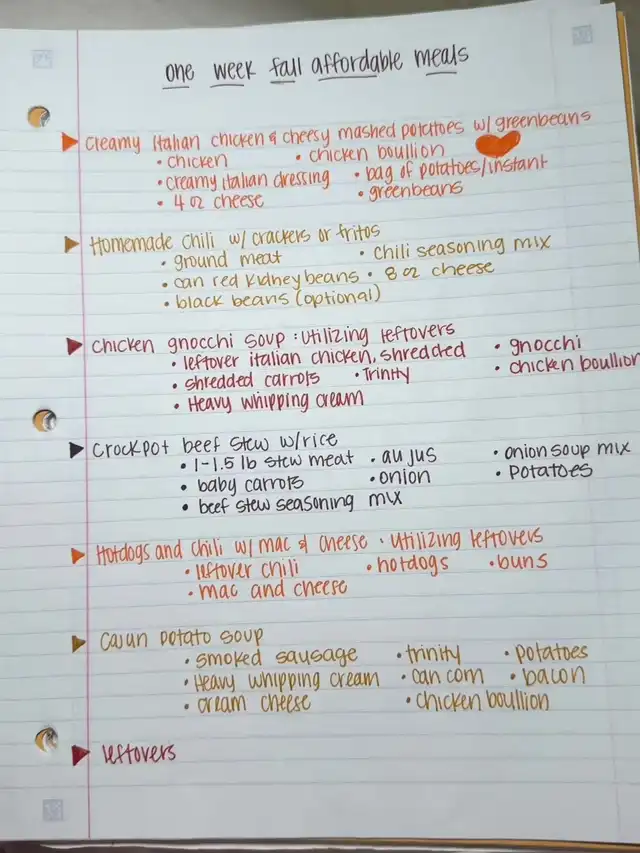 one week fall affordable meals
▶ Creamy Italian chicken & cheesy mashed potatoes w/ greenbeans
• chicken • chicken boullion
• creamy italian dressing • bag of potatoes/instant
• 4 oz cheese • greenbeans
▶ Homemade chili w/ crackers or fritos
• ground meat • chili seasoning mix
• can red kidney beans • 8 oz cheese
• black beans (optional)
▶ Chicken gnocchi soup : utilizing leftovers
• leftover italian chicken, shredded • gnocchi
• shredded carrots • Trinity • chicken boullion
• Heavy whipping cream
▶ Crockpot beef stew w/rice
• 1-1.5 lb stew meat • au jus • onion soup mix
• baby carrots • onion • potatoes
• beef stew seasoning mix
▶ Hotdogs and chili w/ mac & cheese : utilizing leftovers
• leftover chili • hotdogs • buns
• mac and cheese
▶ Cajun potato soup
• smoked sausage • trinity • potatoes
• Heavy whipping cream • can corn • bacon
• cream cheese • chicken boullion
▶ leftovers